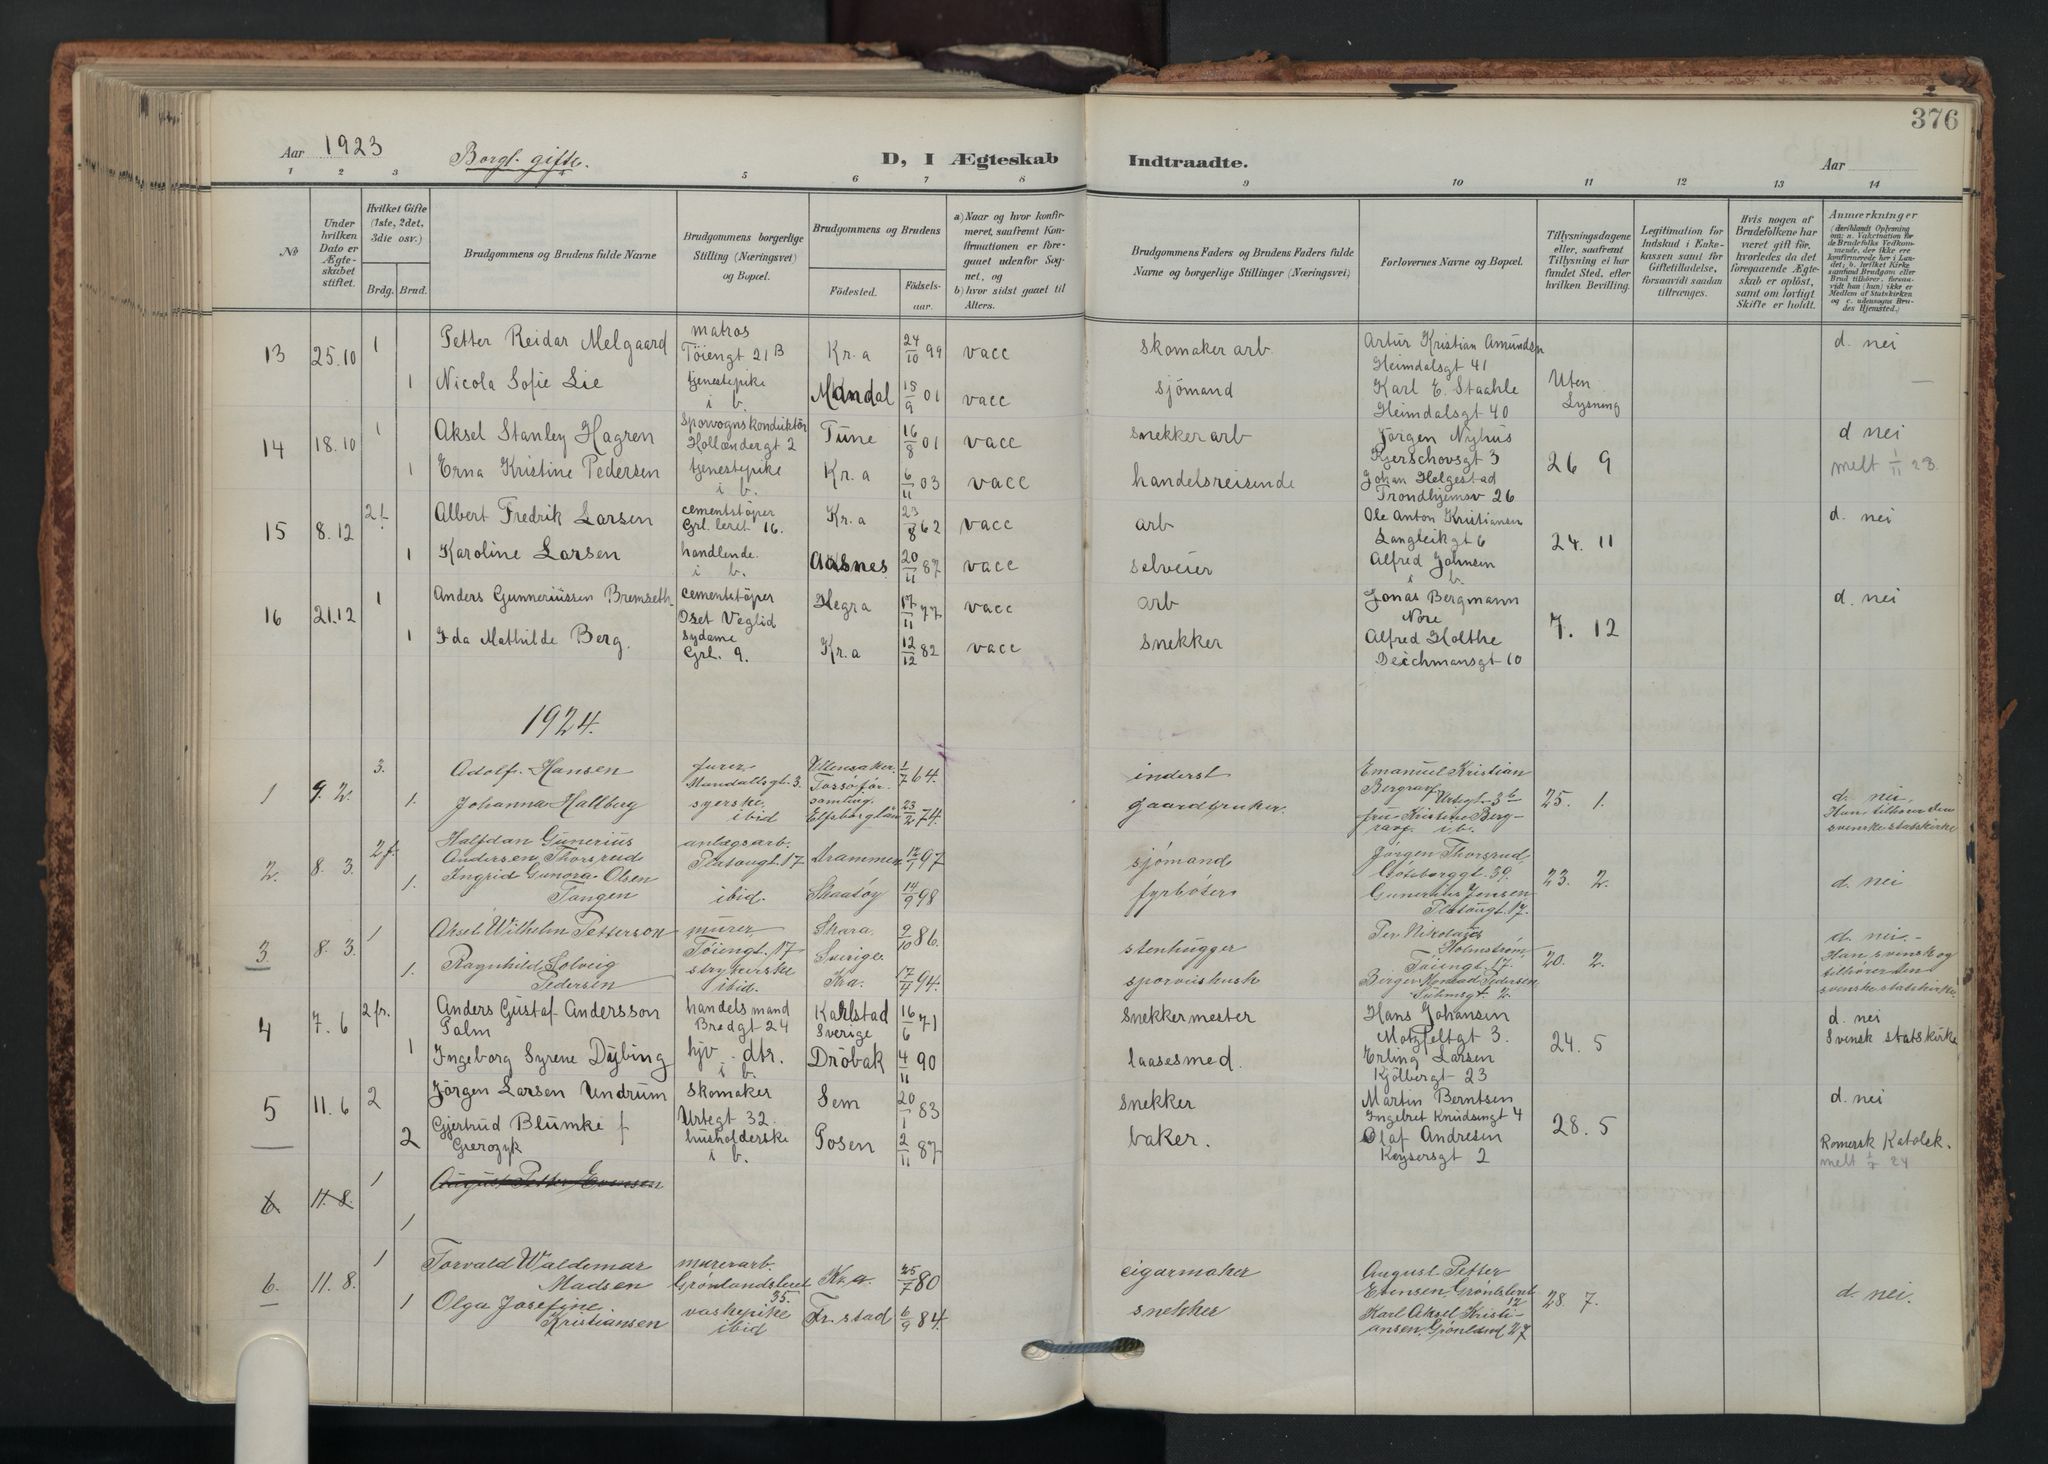 376
Aar 1923
Borgl. gifte.
D, I Ægteskab Indtraadte.
Aar
1 2 3 5 6 7 8 9 10 11 12 13 14
№
Under hvilken Dato er Ægteskabet stiftet.
Hvilket Gifte (1ste, 2det, 3die osv.)
Brdg. Brud.
Brudgommens og Brudens fulde Navne
Brudgommens borgerlige Stilling (Næringsvei) og Bopæl.
Brudgommens og Brudens
Födested. Födselsaar.
a) Naar og hvor konfirmeret, saafremt Konfirmationen er foregaaet udenfor Sognet, og
b) hvor sidst gaaet til Alters.
Brudgommens Faders og Brudens Faders fulde Navne og borgerlige Stillinger (Næringsvei)
Forlovernes Navne og Bopæl.
Tillysningsdagene eller, saafremt Tillysning ei har fundet Sted, efter hvilken Bevilling.
Legitimation for Indskud i Enkekassen samt for Giftetilladelse, forsaavidt saadan tiltrænges.
Hvis nogen af Brudefolkene har været gift för, hvorledes da det foregaaende Ægteskab er oplöst, samt om lovligt Skifte er holdt.
Anmærkninger (deriblandt Oplysning om: a. Vakcination for de Brudefolks Vedkommende, der ikke ere konfirmerede her i Landet; b. hvilket Kirkesamfund Brudgom eller Brud tilhörer, forsaavidt han (hun) ikke er Medlem af Statskirken og c. udensogns Brudes Hjemsted.)
13 25.10 1 Petter Reidar Melgaard matros Töiengt 21B Kr.a 24/10 99 vacc skomaker arb. Artur Kristian Amundsen Heimdalsgt 41 d. nei
1 Nicola Sofie Lie tjenestepike i b. Mandal 15/9 01 vacc sjömand Karl E. Staahle Heimdalsgt 40 Uten Lysning —
14 18.10 1 Aksel Stanley Hagren Sporvognskonduktör Hollændergt 2 Tune 16/8 01 vacc snekker arb Jörgen Nyhus Kjerschovsgt 3 26 9 d nei
1 Erna Kristine Pedersen tjenestepike i b. Kr.a 6/11 03 vacc handelsreisende Johan Helgestad Trondhjemsv 26 melt 1/11 23.
15 8.12 2f. Albert Fredrik Larsen cementstöper Grl. leret 16. Kr.a 23/8 62 vacc arb Ole Anton Kristiansen Langleikgt 6 24. 11 d. nei
1 Karoline Larsen handlende. i b. Aasnes 20/11 87 vacc selveier Alfred Johnsen i b.
16 21.12 1 Anders Gunneriussen Bremseth cementstöper Oset Veglid Hegra 17/11 77 vacc arb Jonas Bergmann Nore 7. 12 d. nei
1 Ida Mathilde Berg. sydame Grl. 9. Kr.a 12/12 82 vacc snekker Alfred Holthe Deichmansgt 10
1924.
1 9.2. 3. Adolf. Hansen furer Mandallsgt. 3. Ullensaker 1/7 64. inderst Emanuel Kristian Bergrav Urtegt. 3b 25. 1. d. nei.
1. Johanna Hallberg syerske. ibid Tossöförsamling. Elfsborglän 23/2 74. gaardbruker. fru Kristine Bergrav. i.b. Hun tilhörer den svenske statskirke
2. 8. 3. 2f. Halfdan Gunerius Andersen Thorsrud anlagsarb. Platougt. 17 Drammen 12/1 97 sjömand Jörgen Thorsrud. Göteborggt. 39. 23. 2. d. nei
1. Ingrid Gunora Olsen Tangen ibid. Skaatöy 14/9 98 fyrböter Gunerius Jensen Platougt. 17.
3 8. 3. 1 Aksel Wilhelm Petterson murer Töiengt. 17 Skara. Sverige 9/10 86. stenhugger Per Nikolaus Holmström Töiengt. 17. 20. 2. d. nei.-
1. Ragnhild Solveig Pedersen strykerske ibid Kra. 17/4 94. sporvishusk Birger Konrad Pedersen Suhmsgt. 2. Han svensk og tilhörer den svenske statskirke.
4 7. 6 2 fr. Anders Gustaf Andersson Palm handelsmand Bredgt 24 Karlstad Sverige 16/6 71 snekkermester Hans Johansen Motzfeltgt 3. 24. 5 d. nei Svensk statskirke
1 Ingeborg Syrene Dybing hjv. dtr. i b. Dröbak 4/11 90 laasesmed. Erling Larsen Kjölbergt 23
5 11. 6 2 Jörgen Larsen Undrum skomaker Urtegt 32. Sem 20/1 83 snekker Martin Berntsen Ingebret Knudsengt 4 28. 5 d. nei
2 Gjertrud Blümke f Gierozyk husholderske i b. Posen 2/11 87 baker. Olaf Andresen Keysersgt 2 Romersk Katolek. melt 1/7 24
6 11.8. 1 August Petter Evensen
1
6. 11.8. 1 Torvald Waldemar Madsen murerarb. Grönlandsleret 35. Kra. 25/7 80 cigarmaker August Petter Evensen, Grönlsleret 12 28. 7. d. nei.
1 Olga Josefine. Kristiansen vaskepike ibid Fr.stad 6/9 84. snekker Karl Aksel Kristiansen, Grönlsrd 27